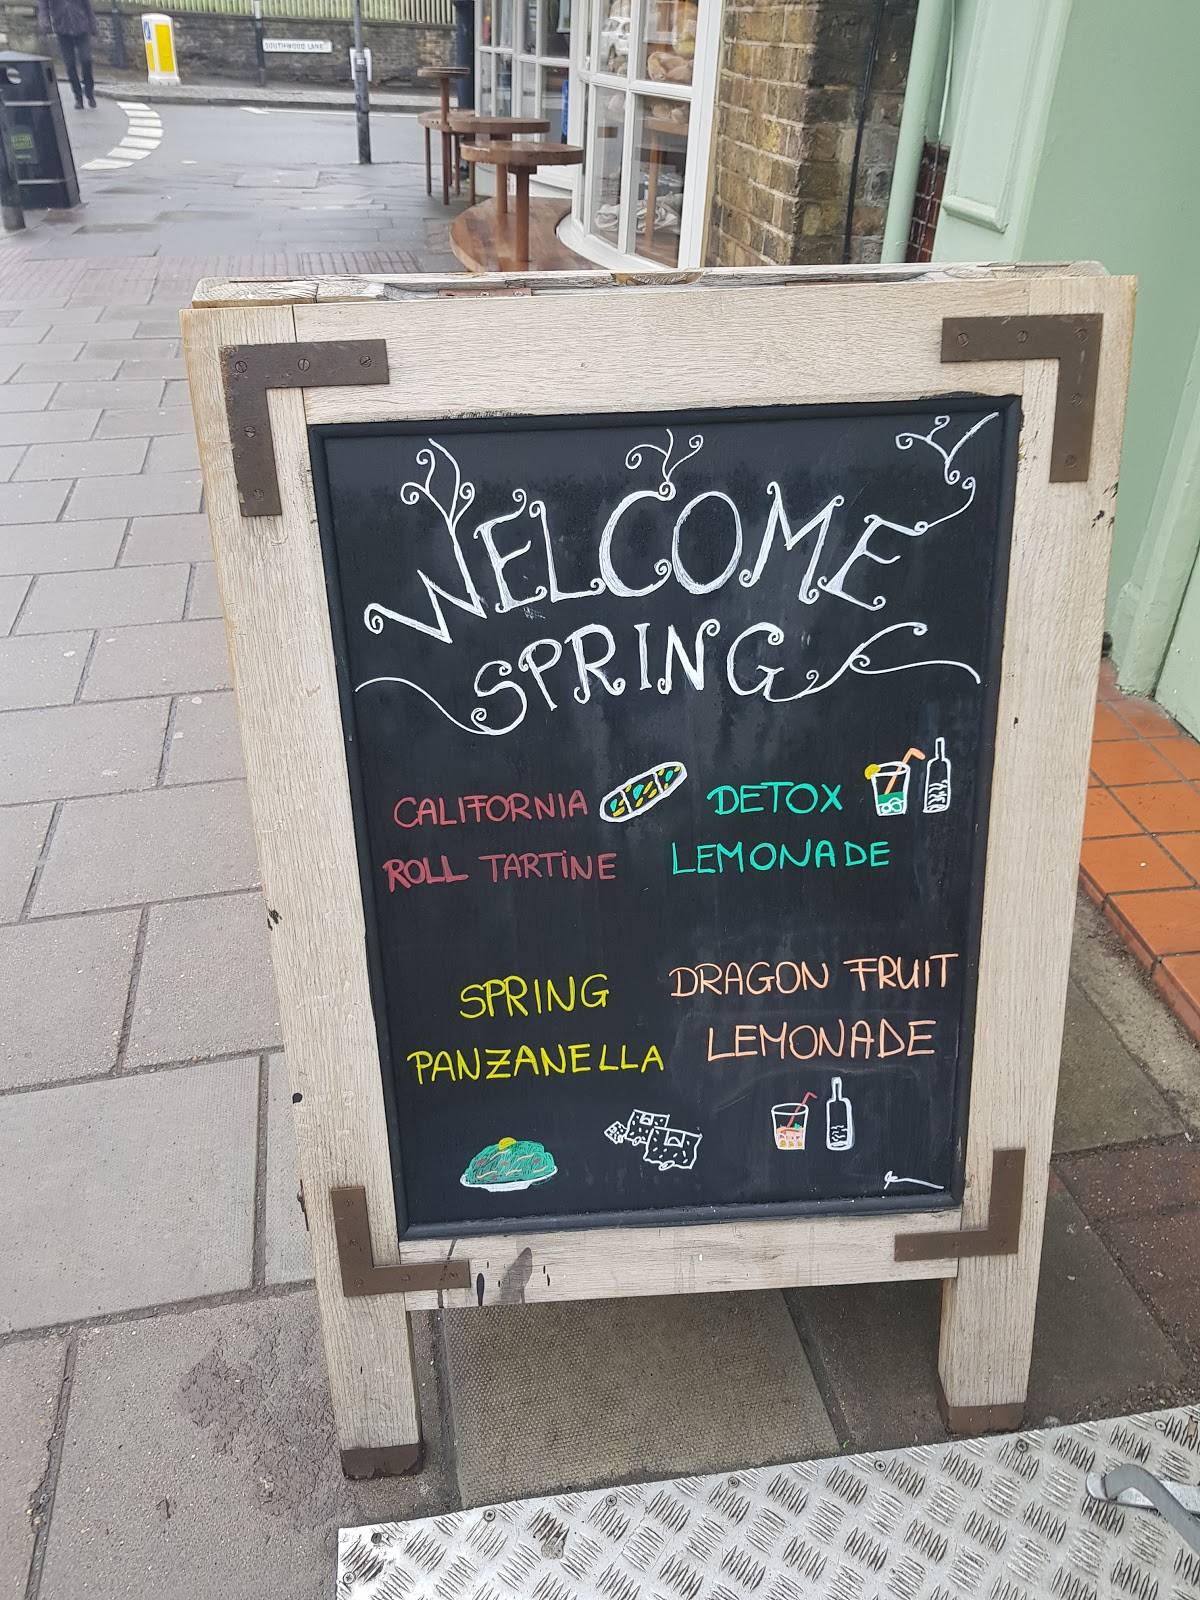 SOUTHWOOD LANE
WELCOME
SPRING
CALIFORNIA
ROLL TARTINE
DETOX
LEMONADE
SPRING
PANZANELLA
DRAGON FRUIT
LEMONADE